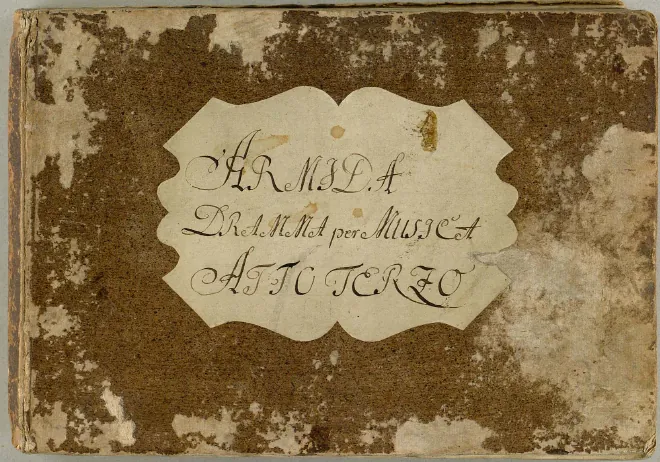 ARMIDA
DRAMMA per MUSICA
ATTO TERZO